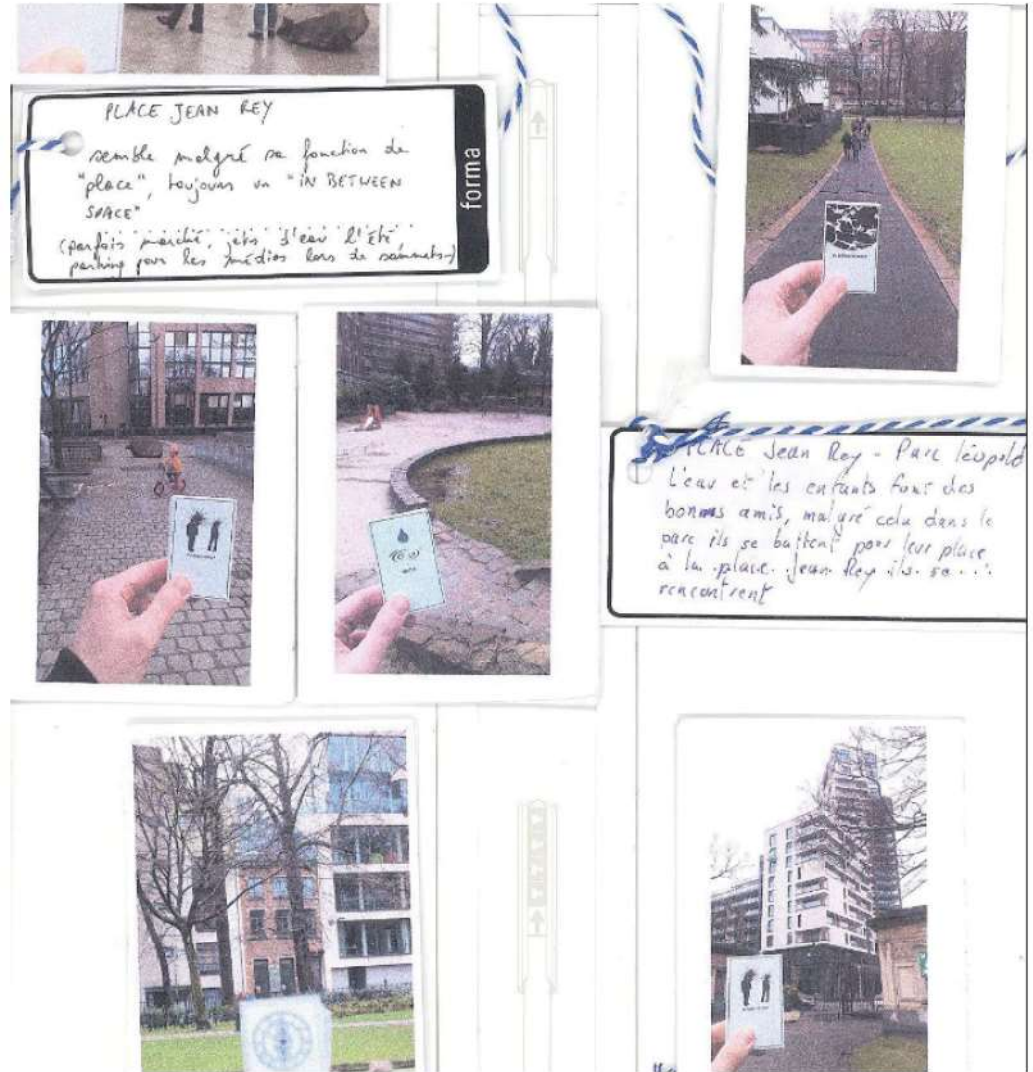 PLACE JEAN REY
semble malgré sa fonction de
"place", toujours un "iN BETWEEN
SPACE"
(parfois marché, jets d'eau l'été,
parking pour les médias lors de sommets)
forma
PLACE Jean Rey - Parc léopold
L'eau et les enfants font des
bonnes amis, malgré cela dans le
parc ils se battent pour leur place
à la place Jean Rey ils se
rencontrent